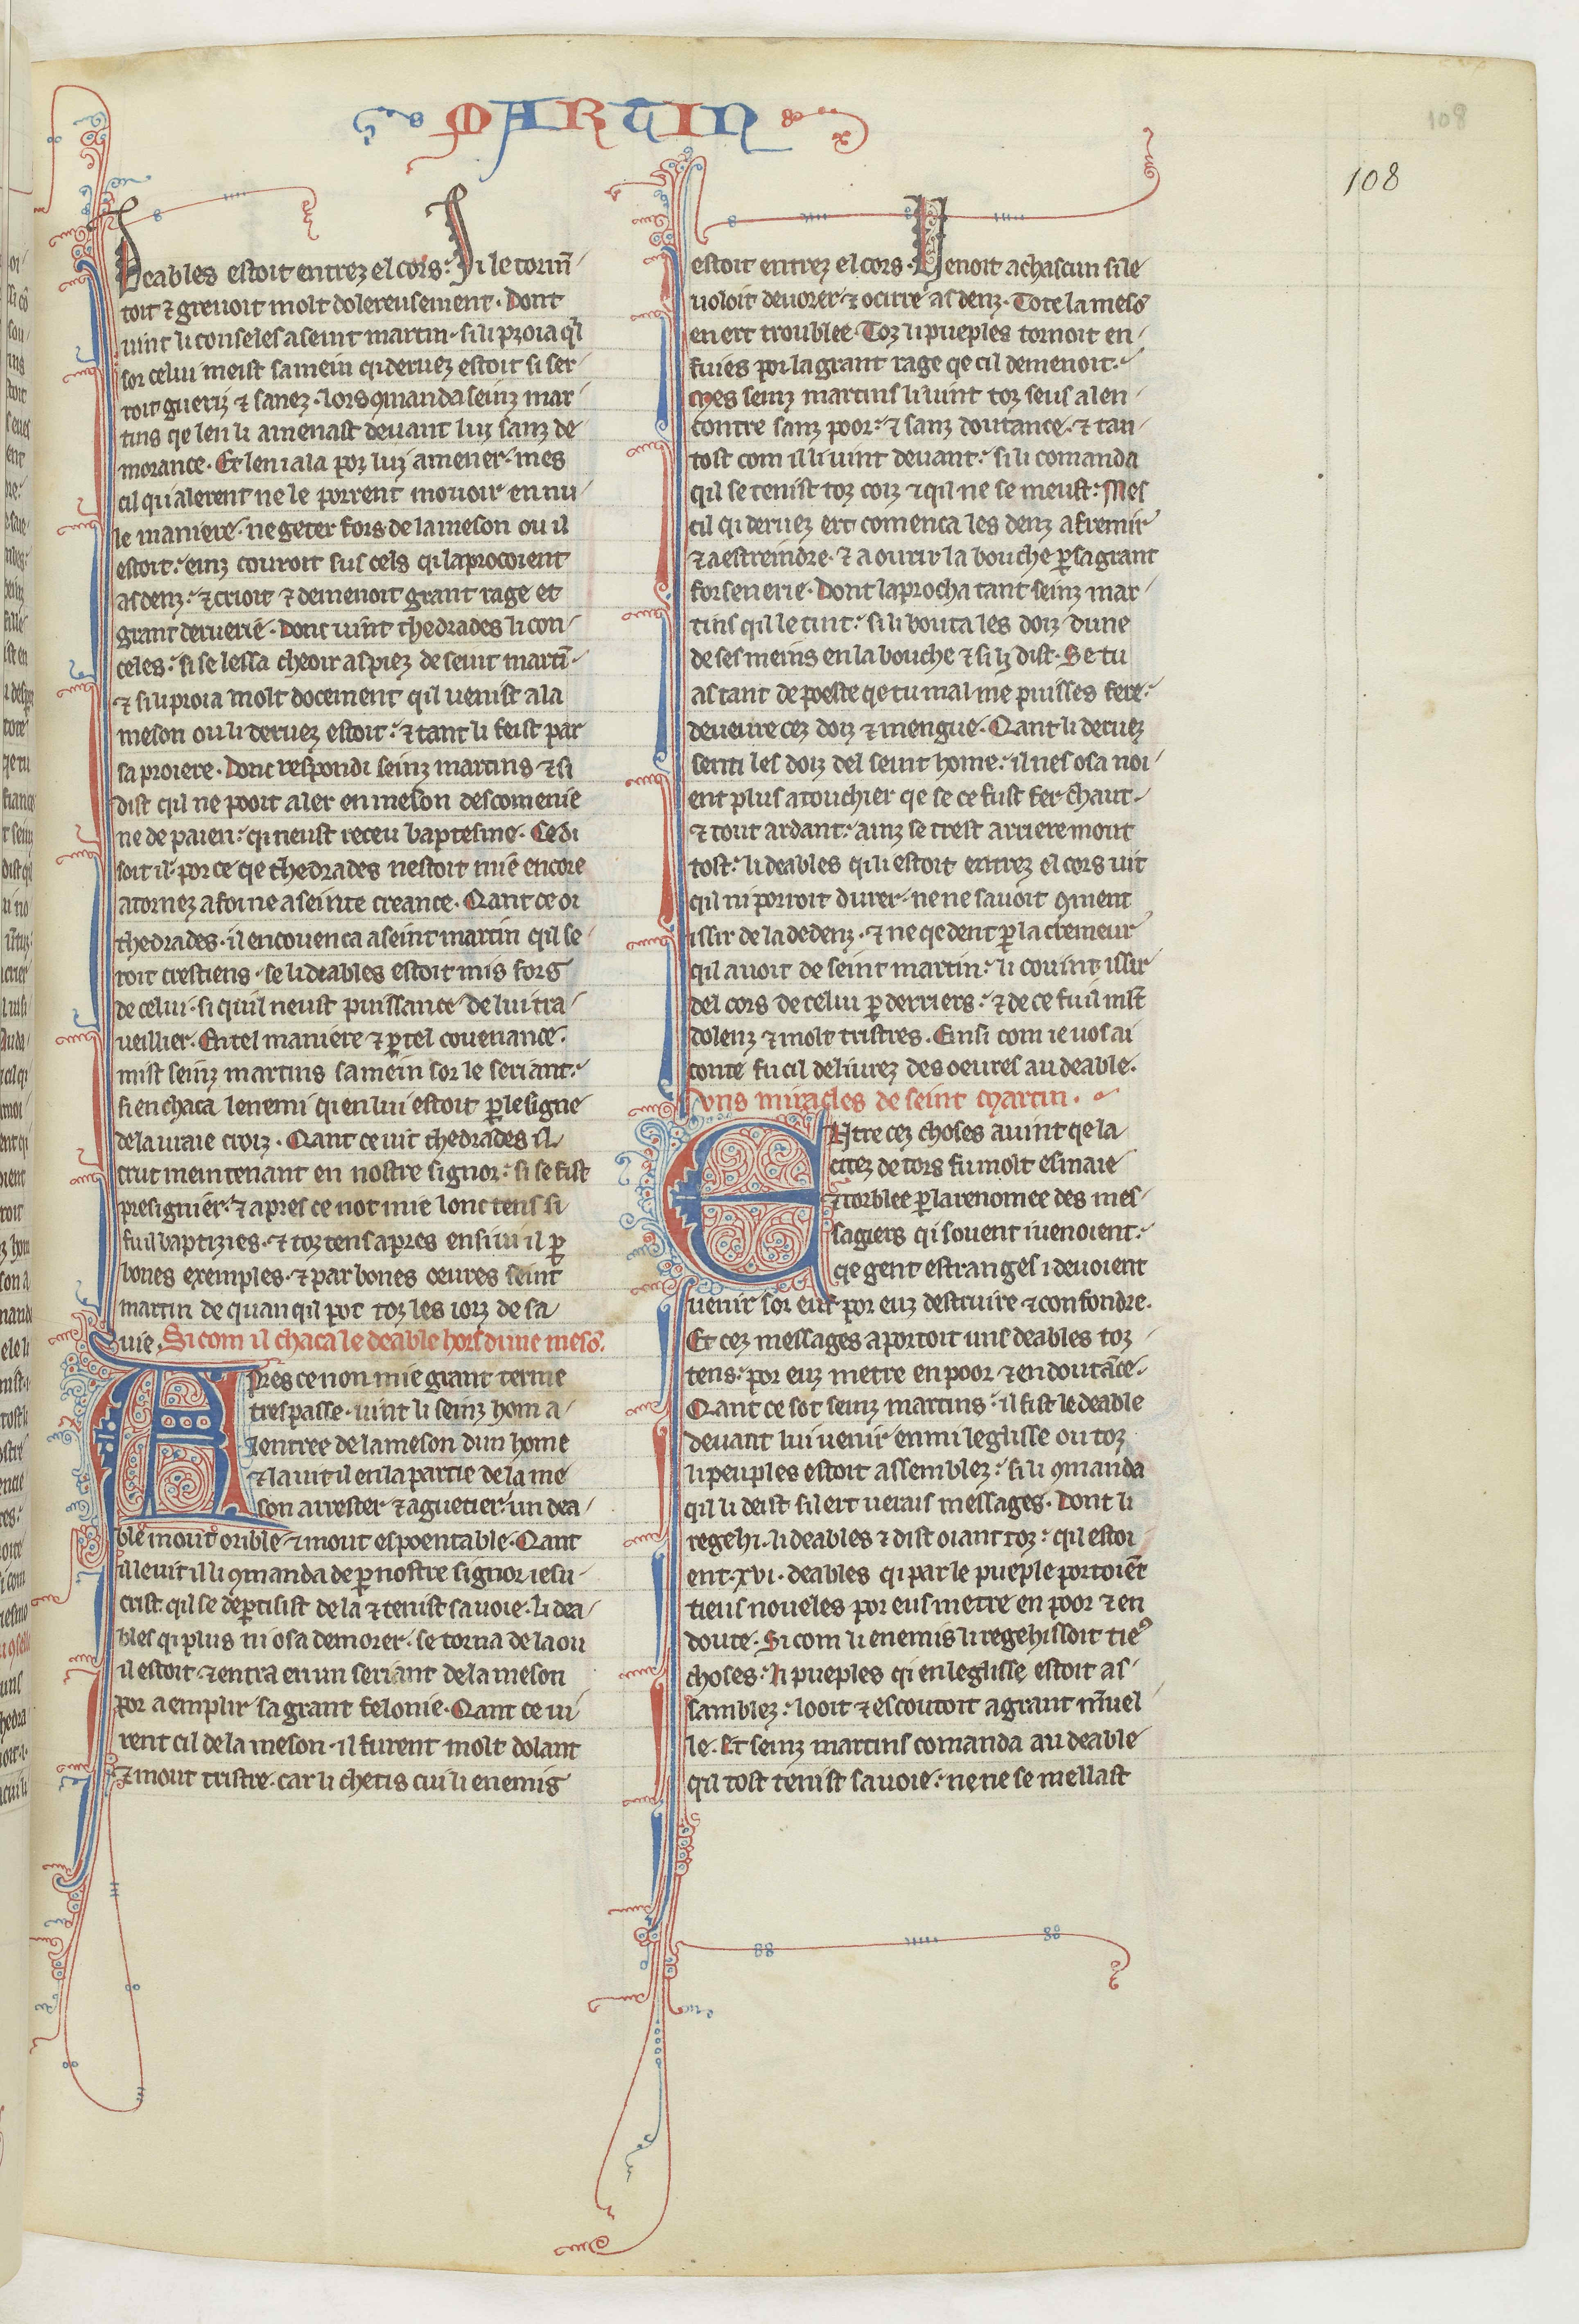 MARTIN
108
108
Deables estoit entrez el cors. Si le tormē
toit ⁊ greuoit molt dolereusement. Dont
uint li conseles a seint martin. si li proia qil
sor celui meist sa mein qi deruez estoit si ser
roit gueriz ⁊ sanez. lors ꝯmanda seinz mar
tins qe len li amenast deuant lui sanz de
morance. Et len i ala por lui amener. mes
cil qui alerent ne le porrent mouoir en nu
le maniere. ne geter fors de la meson ou il
estoit. einz couroit sus cels qi laprocoient
as denz. ⁊ crioit ⁊ demenoit grant rage et
grant deruerie. Dont uint thedrades li con
celes. si se lessa cheoir as piez de seint martī.
⁊ si li proia molt docement qil uenist a la
meson ou li deruez estoit. ⁊ tant li feist par
sa proiere. Dont respondi seinz martins ⁊ si
dist qil ne pooit aler en meson descomenie
ne de paien. qi neust receu baptesme. Ce di
soit il. por ce qe thedrades nestoit mie encore
atornez a foi ne a seinte creance. Qant ce oi
thedrades. il encouenca a seint martin qil se
roit crestiens. se li deables estoit mis fors
de celui. si quil neust puissance de lui tra
ueillier. En tel maniere ⁊ ꝑ tel couenance.
mist seinz martins sa mein sor le seriant.
si en chaca lenemi qi en lui estoit ꝑ le signe
de la uraie croiz. Qant ce uit thedrades il
crut meintenant en nostre signor. si se fist
presignier. ⁊ apres ce not mie lonc tens si
fu il baptiziez. ⁊ toz tens apres ensiui il ꝑ
bones exemples. ⁊ par bones oeures seint
martin de quan qil pot toz les iorz de sa
uie. Si com il chaca le deable hors dune mesō.
Apres ce non mie grant terme
trespasse. uint li seinz hom a
lentree de la meson dun home
⁊ la uit il en la partie de la me
son arrester ⁊ aguetier. un dea
ble mout orible ⁊ mout espoentable. Qant
il le uit il li ꝯmanda de ꝑ nostre signor iesu
crist. qil se deꝑtisist de la ⁊ tenist sa uoie. li dea
bles qi plus ni osa demorer. se torna de la ou
il estoit ⁊ entra en un seriant de la meson
por aemplir sa grant felonie. Qant ce ui
rent cil de la meson. il furent molt dolant
⁊ mout tristre. car li chetis cui li enemis
estoit entrez el cors. Venoit a chascun si le
uoloit deuorer ⁊ ocirre as denz. Tote la mesō
en ert troublee. Toz li pueples tornoit en
fuies por la grant rage qe cil demenoit.
Mes seinz martins li uint toz seus a len
contre sanz poor. ⁊ sanz doutance. ⁊ tan
tost com il li uint deuant. si li comanda
qil se tenist toz coiz ⁊ qil ne se meust. Mes
cil qi deruez ert comenca les denz a fremir
⁊ a estreindre. ⁊ a ourir la bouche ꝑ sa grant
forsenerie. Dont laprocha tant seinz mar
tins qil le tint. si li bouta les doiz dune
de ses meins en la bouche ⁊ si li dist. Se tu
as tant de poeste qe tu mal me puisses fere.
deueure cez doiz ⁊ mengue. Qant li deruez
senti les doiz del seint home. il nes osa noi
ent plus atouchier qe se ce fust fer chaut.
⁊ tout ardant. ainz se trest arriere mout
tost. li deables qi li estoit entrez el cors uit
qil ni porroit durer. ne ne sauoit ꝯment
issir de la dedenz. ⁊ ne qedent ꝑ la cremeur
qil auoit de seint martin. li couint issir
del cors de celui ꝑ derriers. ⁊ de ce fu il mlt̄
dolenz ⁊ molt tristres. Einsi com ie uos ai
conte fu cil deliurez des oeures au deable.
Uns miracles de seint martin.
Entre cez choses auint qe la
citez de tors fu molt esmaie
⁊ torblee ꝑ la renomee des mes
sagiers qi souent i uenoient.
qe gent estranges i deuoient
uenir sor eus por euz destruire ⁊ confondre.
Et cez messages aportoit uns deables toz
tens. por euz metre en poor ⁊ en doutāce.
Qant ce sot seinz martins. il fist le deable
deuant lui uenir enmi leglisse ou toz
li peuples estoit assemblez. si li ꝯmanda
qil li deist sil ert uerais messages. Dont li
regehi li deables ⁊ dist oiant toz. qil estoi
ent .xvi. deables qi par le pueple portoiēt
tieus noueles por eus metre en poor ⁊ en
doute. Si com li enemis li regehissoit tieˀ
choses. li pueples qi en leglisse estoit as
samblez. looit ⁊ escoutoit a grant mͣuel
le. Et seinz martins comanda au deable
qil tost tenist sa uoie. ne ne se mellast